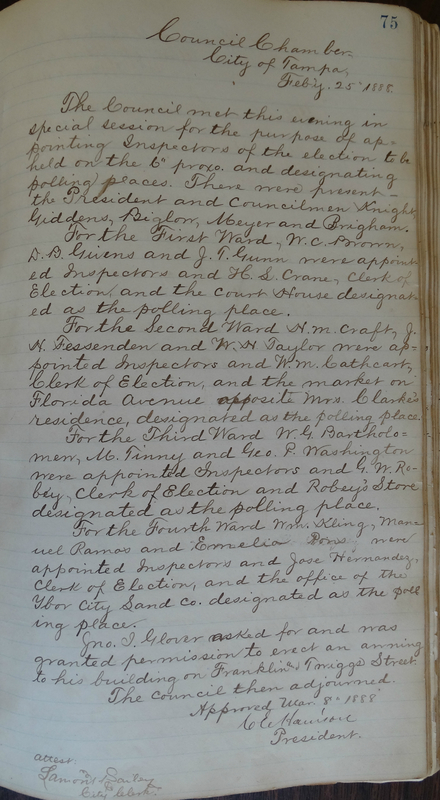 75
Council Chamber,
City of Tampa,
Feb'y. 25" 1888.
The Council met this evening in
special session for the purpose of ap=
pointing Inspectors of the election to be
held on the 6" proxo. and designating
polling places. There were present -
the President and Councilmen Knight,
Giddens, Biglow, Meyer and Brigham.
For the First Ward, W. C. Brown,
D. B. Givens and J. T. Gunn were appoint
ed Inspectors and H. L. Crane, Clerk of
Election, and the Court House designat
ed as the polling place.
For the Second Ward H. M. Craft, J.
N. Fessenden and W. H Taylor were ap=
pointed Inspectors and W. M. Cathcart,
Clerk of Election, and the market on
Florida Avenue opposite Mrs. Clarke's
residence, designated as the polling place.
For the Third Ward W. G. Bartholo=
mew, M. Tinny and Geo. P. Washington
were appointed Inspectors and G. W. Ro=
bey, Clerk of Election and Robey's Store
designated as the polling place.
For the Fourth Ward Wm. Kling, Man
uel Ramos and were
appointed Inspectors and Jose Hernandez,
Clerk of Election, and the office of the
Ybor City Sand Co. designated as the poll
ing place.
Jno. T. Glover asked for and was
granted permission to erect an awning
to his building on Franklin & Twiggs Street.
The Council then adjourned.
Approved Mar. 8" 1888
President.
attest.
City Clerk.